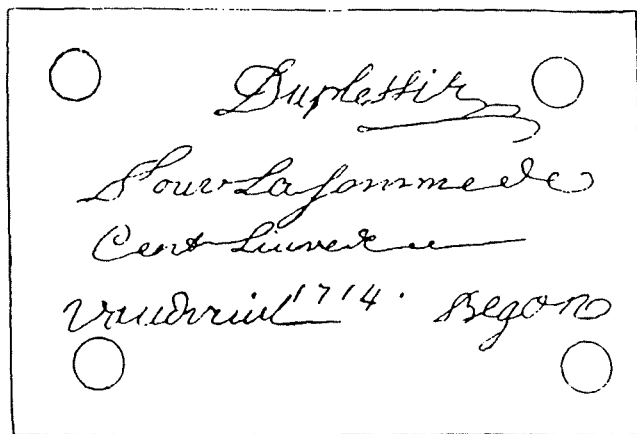 Duplessis
Pour La somme de
Cent Liuvres
Vaudreuil 1714. Begon